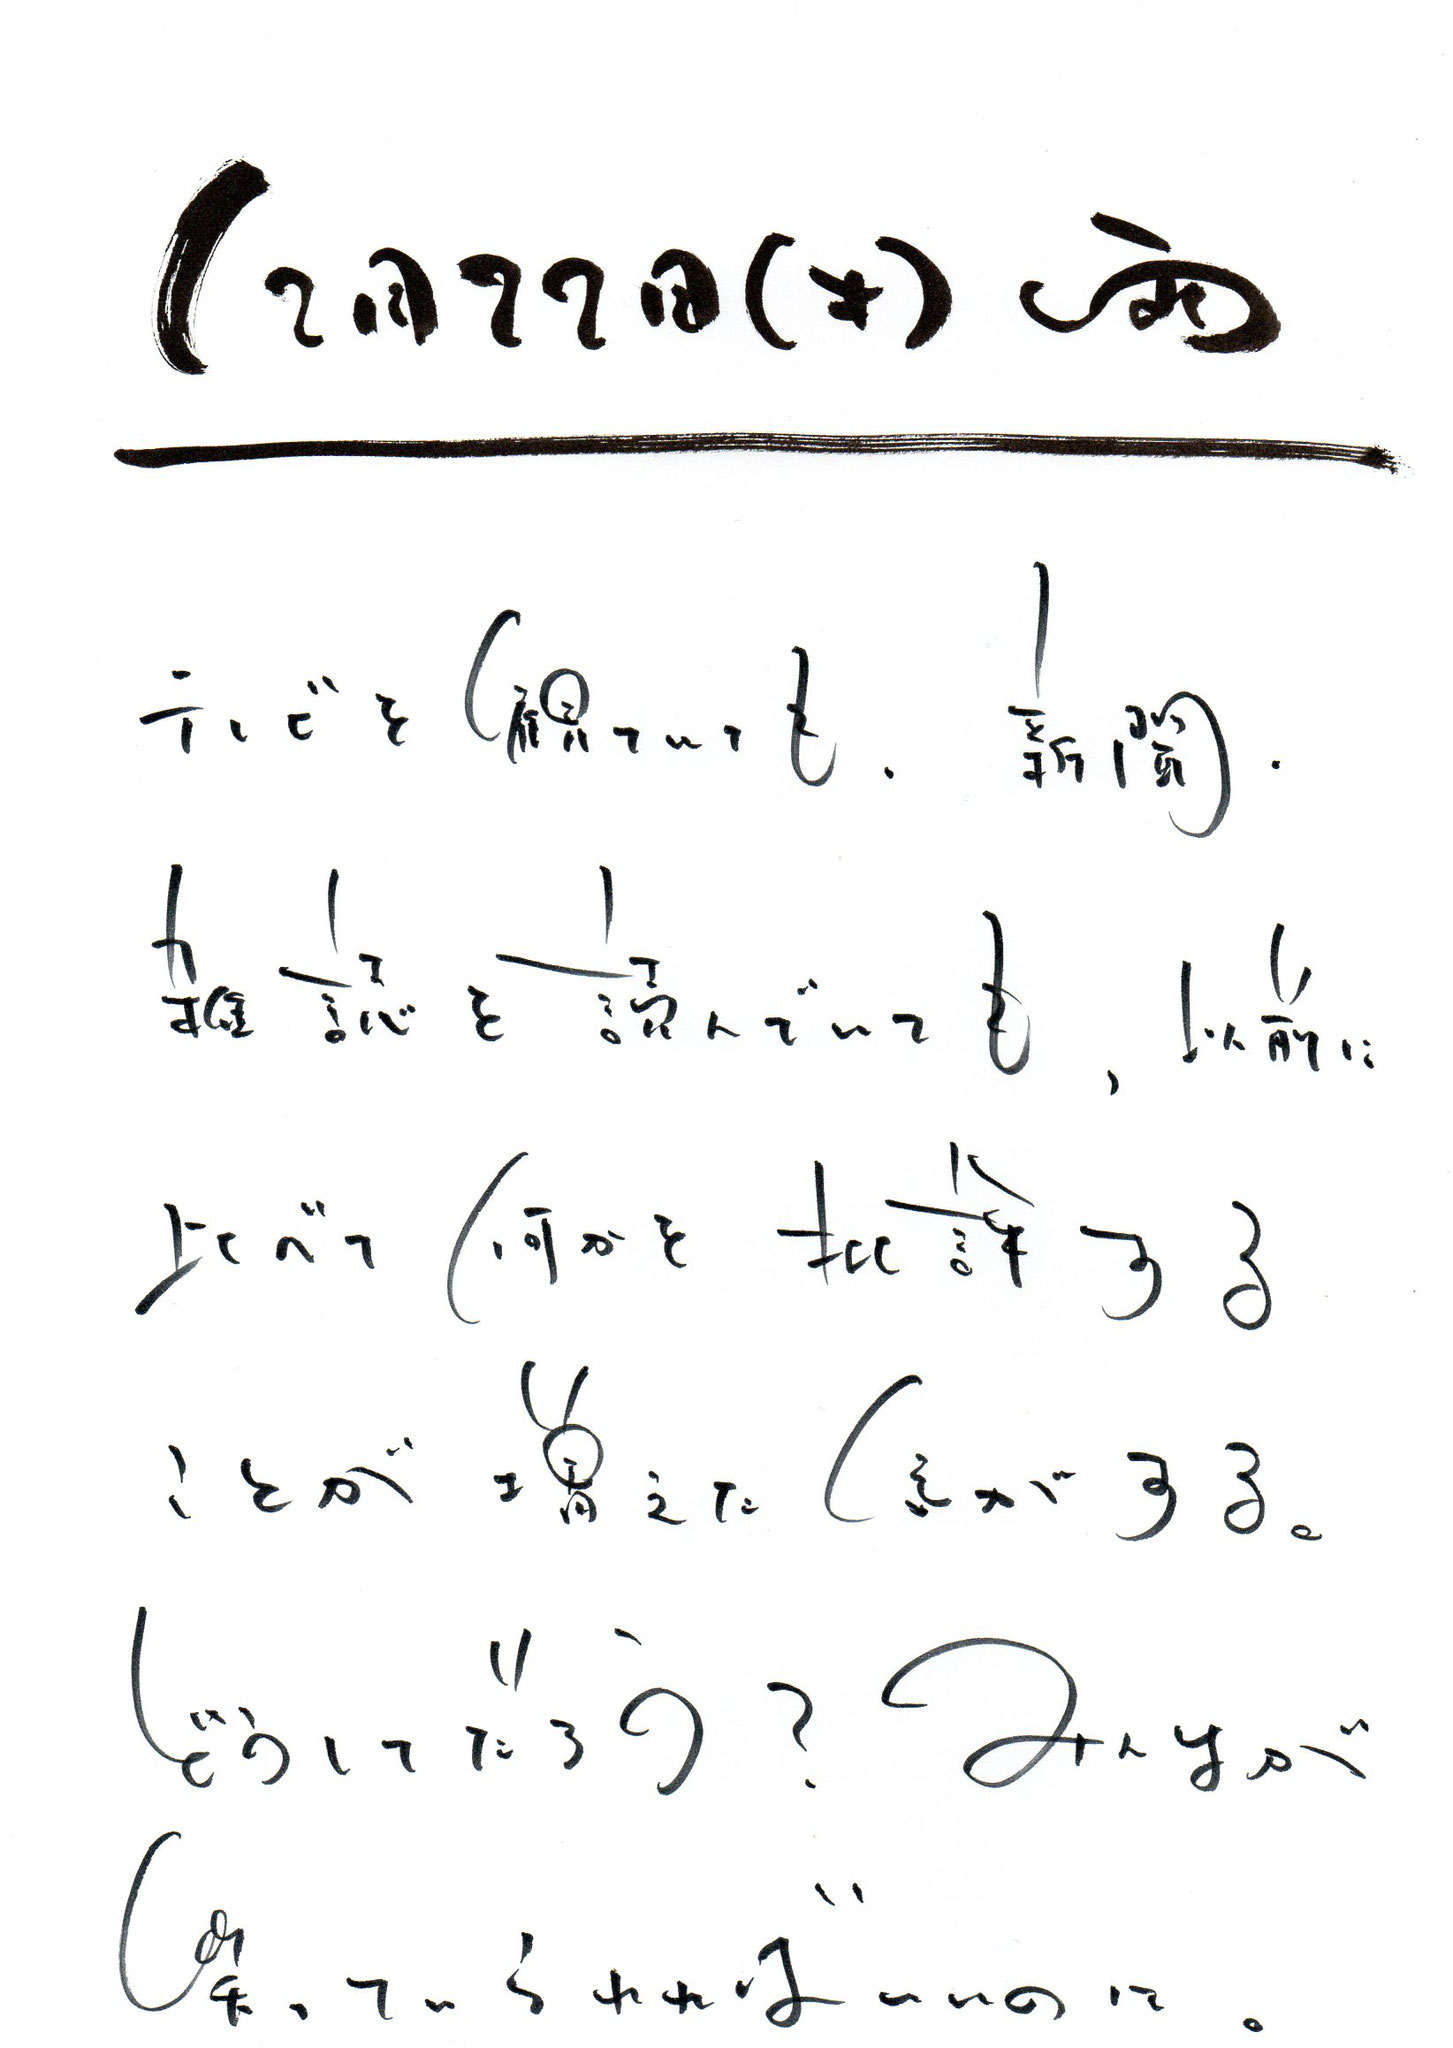 テレビを観ていても、新聞、
雑誌を読んでいても、以前に
比べて何かを批評する
ことが増えた気がする。
どうしてだろう？みんなが
笑っていられればいいのに。